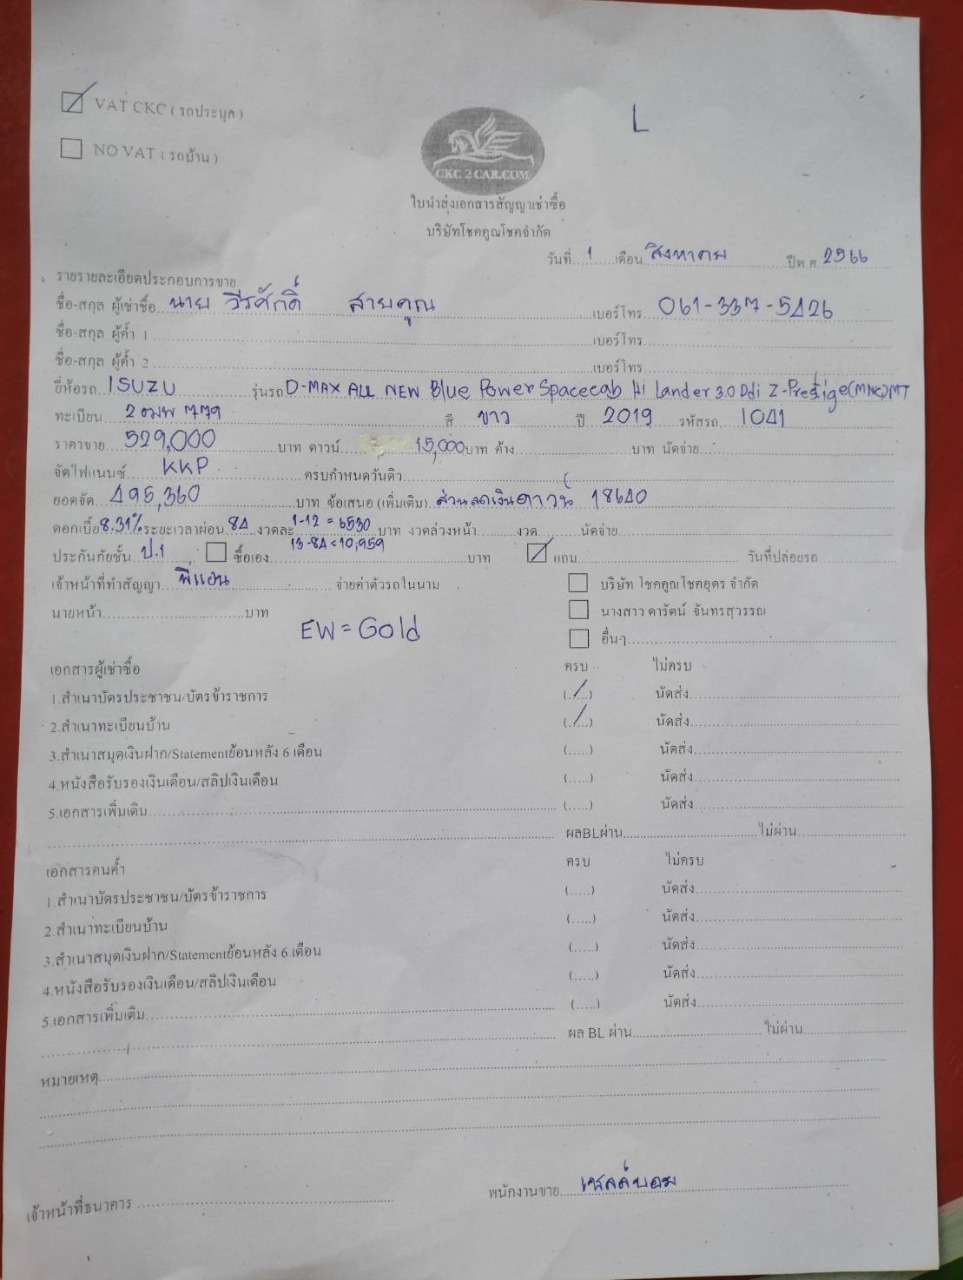 VAT CKC ( รถประมูล )
L
NO VAT ( รถบ้าน )
CKC 2 CAR.COM
ใบนำส่งเอกสารสัญญาเช่าซื้อ
บริษัทโชคคูณโชคจำกัด
วันที่ 1 เดือน สิงหาคม ปีพ.ศ. 2566
รายรายละเอียดประกอบการขาย
ชื่อ-สกุล ผู้เช่าซื้อ นาย วีรศักดิ์ สายคูณ เบอร์โทร 061-337-5426
ชื่อ-สกุล ผู้ค้ำ 1 เบอร์โทร
ชื่อ-สกุล ผู้ค้ำ 2 เบอร์โทร
ยี่ห้อรถ ISUZU รุ่นรถ D-MAX ALL NEW Blue Power Spacecab Hi Lander 3.0 Ddi Z-Prestige(MNC)MT
ทะเบียน 2 ฒพ 779 สี ขาว ปี 2019 รหัสรถ 1041
ราคาขาย 529,000 บาท ดาวน์ 15,000 บาท ค้าง บาท นัดจ่าย
จัดไฟแนนซ์ KKP ครบกำหนดวันคิว
ยอดจัด 495,360 บาท ข้อเสนอ (เพิ่มเติม) ส่วนลดเงินดาวน์ 18640
ดอกเบี้ย 8.31% ระยะเวลาผ่อน 84 งวดละ 1-12 = 6530 บาท งวดล่วงหน้า งวด นัดจ่าย
13-84 = 10,959
ประกันภัยชั้น ป.1 ซื้อเอง บาท แถม วันที่ปล่อยรถ
เจ้าหน้าที่ทำสัญญา พี่แอน จ่ายค่าตัวรถในนาม บริษัท โชคคูณโชคอุดร จำกัด
นายหน้า บาท นางสาว ดารัตน์ จันทรสุวรรณ
EW = Gold
อื่นๆ
เอกสารผู้เช่าซื้อ ครบ ไม่ครบ
1.สำเนาบัตรประชาชน/บัตรข้าราชการ (../..) นัดส่ง
2.สำเนาทะเบียนบ้าน (../..) นัดส่ง
3.สำเนาสมุดเงินฝาก/Statementย้อนหลัง 6 เดือน (.....) นัดส่ง
4.หนังสือรับรองเงินเดือน/สลิปเงินเดือน (.....) นัดส่ง
5.เอกสารเพิ่มเติม (.....) นัดส่ง
ผลBLผ่าน ไม่ผ่าน
เอกสารคนค้ำ ครบ ไม่ครบ
1.สำเนาบัตรประชาชน/บัตรข้าราชการ (.....) นัดส่ง
2.สำเนาทะเบียนบ้าน (.....) นัดส่ง
3.สำเนาสมุดเงินฝาก/Statementย้อนหลัง 6 เดือน (.....) นัดส่ง
4.หนังสือรับรองเงินเดือน/สลิปเงินเดือน (.....) นัดส่ง
5.เอกสารเพิ่มเติม (.....) นัดส่ง
ผล BL ผ่าน ไม่ผ่าน
หมายเหตุ
เจ้าหน้าที่ธนาคาร พนักงานขาย เซลล์บอม